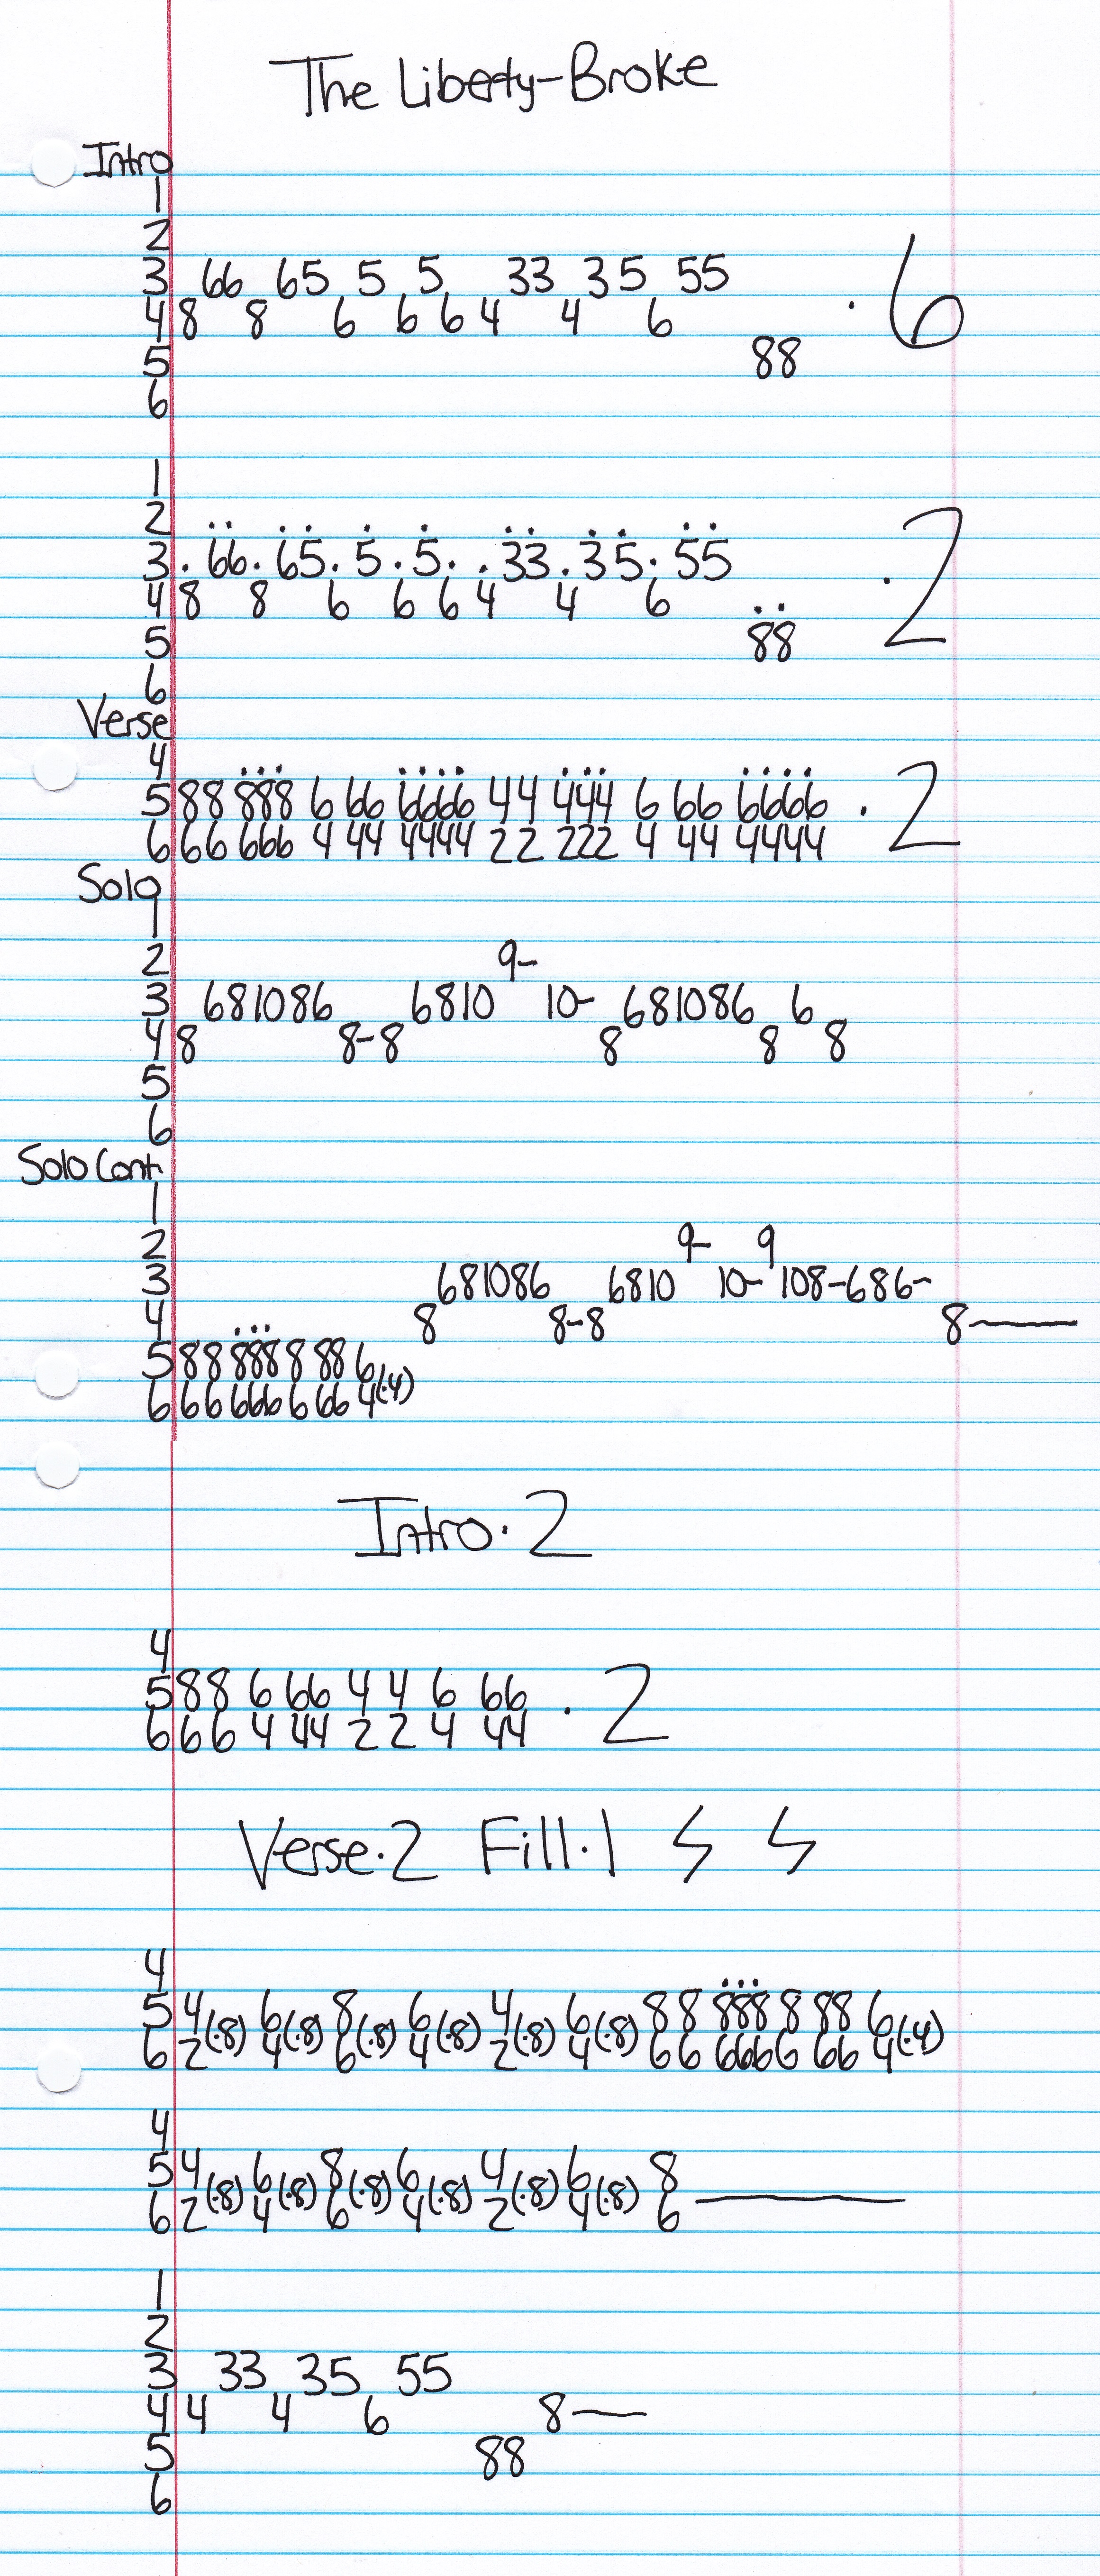 The Liberty-Broke
Intro
1
2
3 66 65 5 5 33 35 55
4 8 8 6 6 6 4 4 6 · 6
5 88
6
1
2
3 . 66. 65. 5 . 5. . 33 . 35. 55
4 8 8 6 6 6 4 4 6 · 2
5 88
6
Verse
4
5 88 888 6 66 6666 44 444 6 66 6666 · 2
6 66 666 4 44 4444 22 222 4 44 4444
Solo
1
2 9-
3 681086 6810 10- 681086 6
4 8 8-8 8 8 8
5
6
Solo Cont.
1
2 9- 9
3 681086 6810 10- 108-686-
4 8 8-8 8—
5 88 888 8 88 6
6 66 666 6 66 4(·4)
Intro·2
4
5 88 6 66 4 4 6 66 · 2
6 66 4 44 2 2 4 44
Verse·2 Fill·1 ϟ ϟ
4
5 4 6 8 6 4 6 8 8 888 8 88 6
6 2(·8) 4(·8) 6(·8) 4(·8) 2(·8) 4(·8) 6 6 666 6 66 4(·4)
4
5 4 6 8 6 4 6 8
6 2(·8) 4(·8) 6(·8) 4(·8) 2(·8) 4(·8) 6 —
1
2
3 33 35 55
4 4 4 6 8—
5 88
6